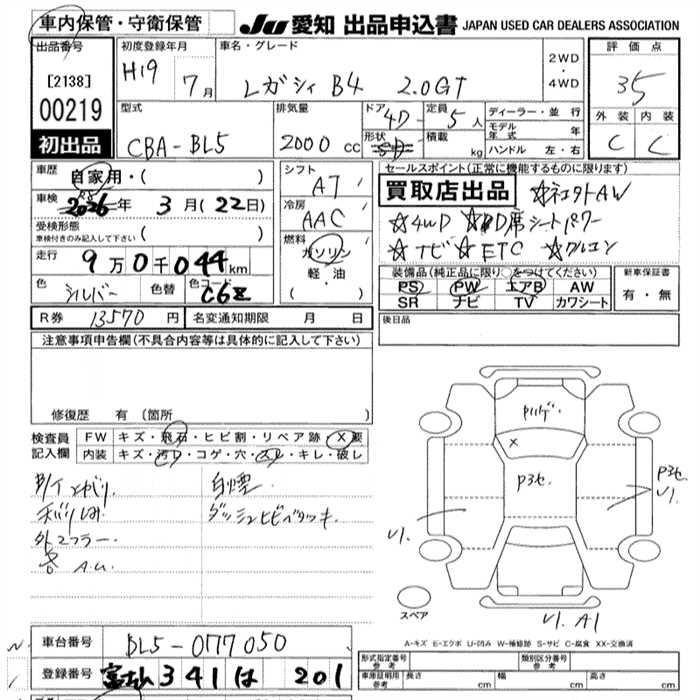 車内保管・守衛保管
JU 愛知 出品申込書 JAPAN USED CAR DEALERS ASSOCIATION
出品番号
[2138]
00219
初出品
初度登録年月
H19 7月
車名・グレード
レガシィ B4 2.0GT
2WD
・
4WD
評価点
3.5
外装 内装
C C
型式
CBA-BL5
排気量
2000 cc
ドア 4D
形状
定員 5人
積載 kg
ディーラー・並行
モデル年式 年
ハンドル 左・右
車歴 自家用・( )
車検 2026年 3月(22日)
受検形態
車検付きのみ記入して下さい ( )
走行 9万0千044km
色 シルバー 色替 色コード C6Z
シフト
A7
冷房
AAC
燃料
ガソリン
軽・油
( )
セールスポイント(正常に機能するものに限ります)
買取店出品 ☆社外AW
☆4WD ☆D席シートパワー
☆ナビ☆ETC ☆
装備品(純正品に限り○をつけてください)
PS PW エアB AW
SR ナビ TV カワシート
新車保証書
有・無
R券 13570円 名変通知期限 月 日
後日品
注意事項申告欄(不具合内容等は具体的に記入して下さい)
修復歴 有(箇所 )
検査員記入欄
FW キズ・飛石・ヒビ割・リペア跡・X要
内装 キズ・汚レ・コゲ・穴・スレ・キレ・破レ
外マフラー
各 A.U.
白煙
ダッシュヒビベタツキ
P3セ
P3セ
U1.
U1.
U1. A1
スペア
A-キズ E-エクボ U-凹み W-補修跡 S-サビ C-腐食 XX-交換済
車台番号 BL5-077050
登録番号 341 は 201
型式指定番号 参考
類別区分番号 参考
車庫証明用 参考 長さ cm 幅 cm 高さ cm